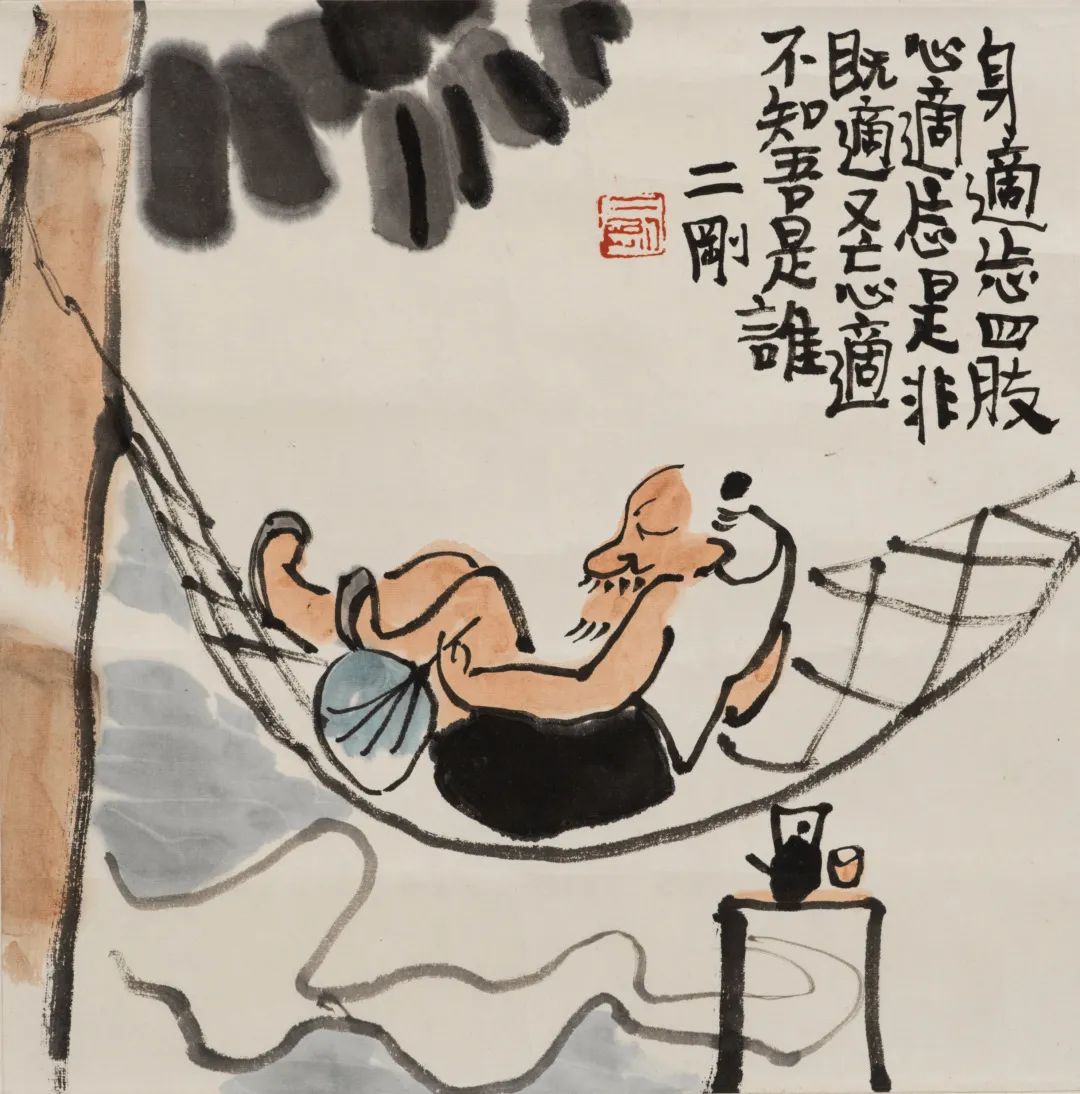 身適忘四肢
心適忘是非
既適又忘適
不知吾是誰
二剛